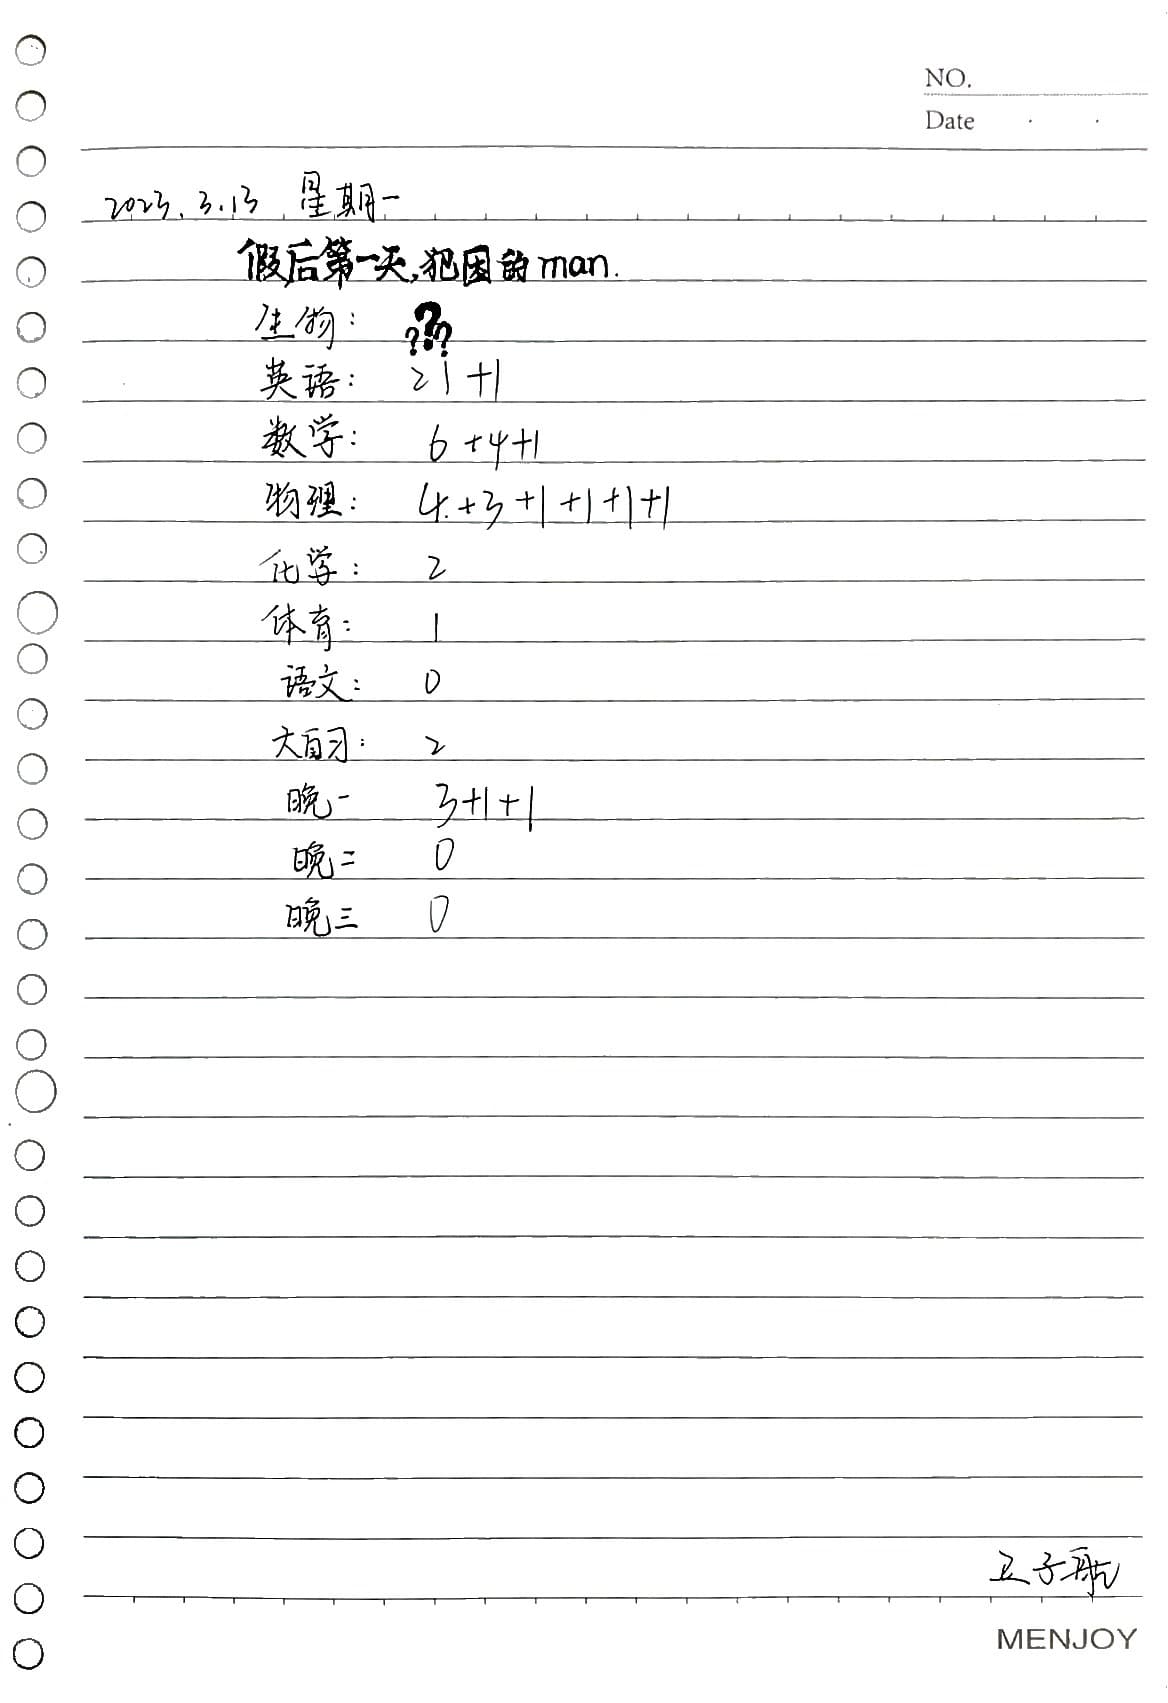 NO.
Date
2023.3.13 星期一
假后第一天,犯困的man.
生物: ???
英语: 21+1
数学: 6+4+1
物理: 4+3+1+1+1+1
化学: 2
体育: 1
语文: 0
大自习: 2
晚一 3+1+1
晚二 0
晚三 0
子航
MENJOY